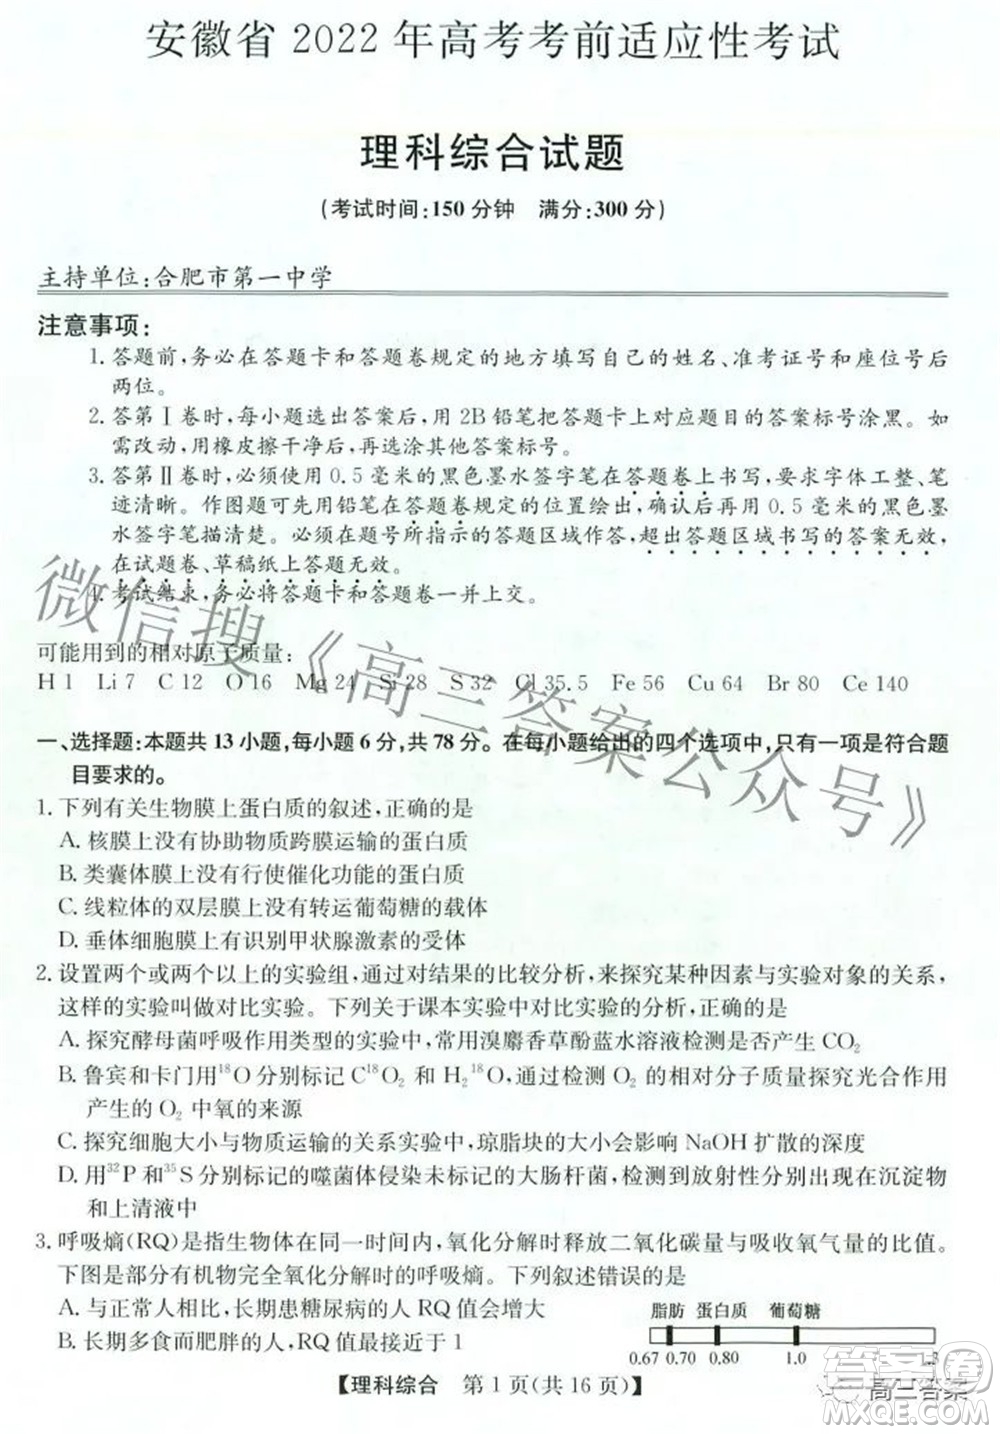 安徽省 2022 年高考考前适应性考试
理科综合试题
(考试时间:150 分钟　满分:300 分)
主持单位:合肥市第一中学
注意事项:
1. 答题前,务必在答题卡和答题卷规定的地方填写自己的姓名、准考证号和座位号后
两位。
2. 答第Ⅰ卷时,每小题选出答案后,用 2B 铅笔把答题卡上对应题目的答案标号涂黑。如
需改动,用橡皮擦干净后,再选涂其他答案标号。
3. 答第Ⅱ卷时,必须使用 0.5 毫米的黑色墨水签字笔在答题卷上书写,要求字体工整、笔
迹清晰。作图题可先用铅笔在答题卷规定的位置绘出,确认后再用 0.5 毫米的黑色墨
水签字笔描清楚。必须在题号所指示的答题区域作答,超出答题区域书写的答案无效,
在试题卷、草稿纸上答题无效。
4. 考试结束,务必将答题卡和答题卷一并上交。
可能用到的相对原子质量:
H 1　Li 7　C 12　O 16　Mg 24　Si 28　S 32　Cl 35.5　Fe 56　Cu 64　Br 80　Ce 140
一、选择题:本题共 13 小题,每小题 6 分,共 78 分。在每小题给出的四个选项中,只有一项是符合题
目要求的。
1. 下列有关生物膜上蛋白质的叙述,正确的是
A. 核膜上没有协助物质跨膜运输的蛋白质
B. 类囊体膜上没有行使催化功能的蛋白质
C. 线粒体的双层膜上没有转运葡萄糖的载体
D. 垂体细胞膜上有识别甲状腺激素的受体
2. 设置两个或两个以上的实验组,通过对结果的比较分析,来探究某种因素与实验对象的关系,
这样的实验叫做对比实验。下列关于课本实验中对比实验的分析,正确的是
A. 探究酵母菌呼吸作用类型的实验中,常用溴麝香草酚蓝水溶液检测是否产生 CO₂
B. 鲁宾和卡门用¹⁸O 分别标记 C¹⁸O₂ 和 H₂¹⁸O,通过检测 O₂ 的相对分子质量探究光合作用
产生的 O₂ 中氧的来源
C. 探究细胞大小与物质运输的关系实验中,琼脂块的大小会影响 NaOH 扩散的深度
D. 用³²P 和³⁵S 分别标记的噬菌体侵染未标记的大肠杆菌,检测到放射性分别出现在沉淀物
和上清液中
3. 呼吸熵(RQ)是指生物体在同一时间内,氧化分解时释放二氧化碳量与吸收氧气量的比值。
下图是部分有机物完全氧化分解时的呼吸熵。下列叙述错误的是
A. 与正常人相比,长期患糖尿病的人 RQ 值会增大
B. 长期多食而肥胖的人,RQ 值最接近于 1
脂肪 蛋白质 葡萄糖
0.67 0.70 0.80 1.0 1.3
【理科综合　第 1 页(共 16 页)】
微信搜《高三答案公众号》
答案圈
高三答案
MXQE.COM